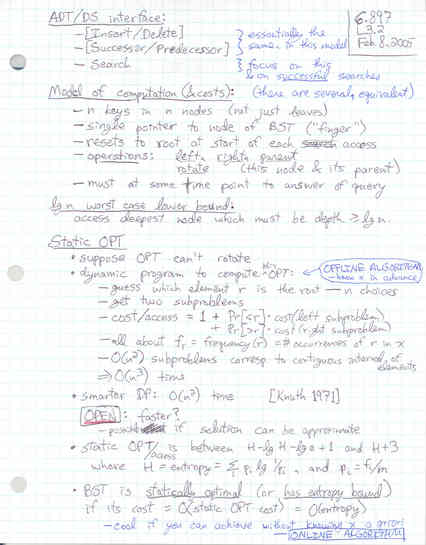 ADT/DS interface:
6.897
L3.2
Feb. 8, 2005
– [Insert/Delete]
– [Successor/Predecessor]
} essentially the same in this model
– Search
} focus on this & on successful searches
Model of computation (& costs): (there are several, equivalent)
– n keys in n nodes (not just leaves)
– single pointer to node of BST ("finger")
– resets to root at start of each access
– operations: left, right, parent
rotate (this node & its parent)
– must at some time point to answer of query
lg n worst case lower bound:
access deepest node which must be depth ≥ lg n.
Static OPT
• suppose OPT can't rotate
• dynamic program to compute this OPT:
OFFLINE ALGORITHM
– know x in advance
– guess which element r is the root – n choices
– get two subproblems
– cost/access = 1 + Pr[<r] · cost(left subproblem)
+ Pr[>r] · cost(right subproblem)
– all about f_r = frequency(r) = # occurrences of r in x
– O(n²) subproblems corresp to contiguous interval of elements
⇒ O(n³) time
• smarter DP: O(n²) time [Knuth 1971]
OPEN: faster?
– if solution can be approximate
• static OPT/access is between H – lg H – lg e + 1 and H + 3
where H = entropy = Σ pᵢ lg 1/pᵢ, and pᵢ = fᵢ/m
• BST is statically optimal (or has entropy bound)
if its cost = O(static OPT cost) = O(entropy)
– cool if you can achieve without knowing x a priori
– ONLINE ALGORITHM